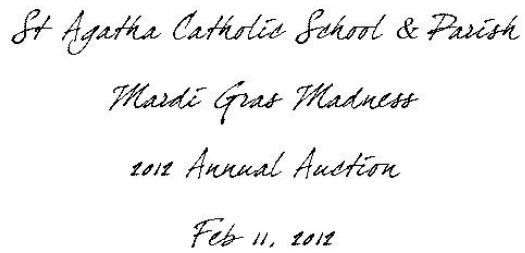 St Agatha Catholic School & Parish
Mardi Gras Madness
2012 Annual Auction
Feb 11, 2012